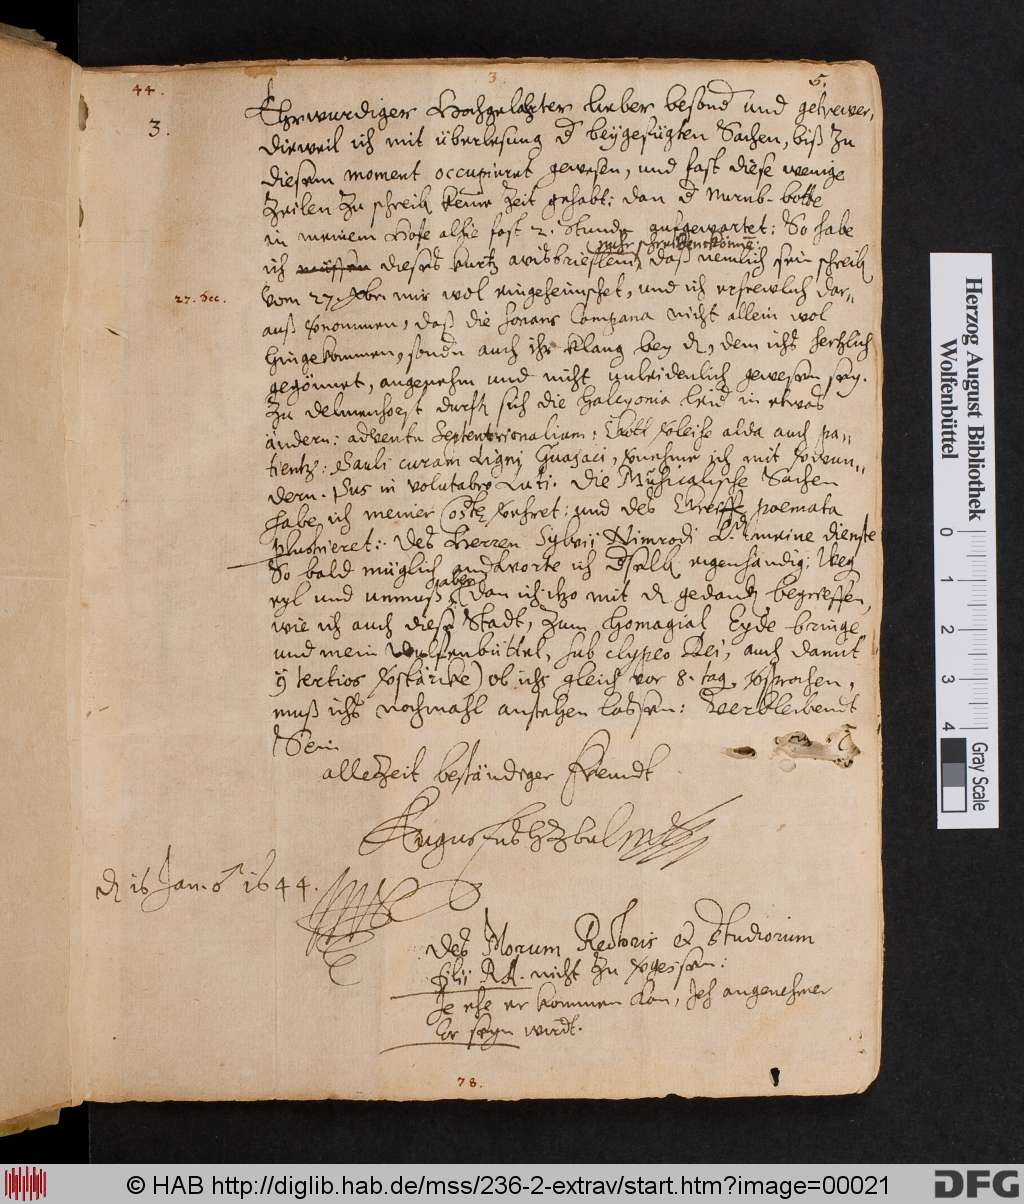 44. 3. 5.
3.
Ehrwürdiger Hochgelahrter lieber besond und getrewer,
dieweil ich mit überlesung d beygefügten Sachen, biß zu
diesem moment occupieret gewesen, und fast diese wenige
Zeilen zu schreib keine Zeit gehabt: dan d Nurnb. botte
in meinem Hofe alhie fast 2. stunde aufgewartet: So habe
mehr schreiben können
ich müssen dieses kurtz daß nemlich sein schreib
27. Dec.
vom 27. Xbr. mir wol eingeheimschet, und ich erfrewlich dar-
auß vernommen, daß die sonans Campana nicht allein wol
hingekommen, sondn auch ihr klang bey d, dem ichs hertzlich
gegönnet, angenehm und nicht unleidenlich gewesen sey.
Zu Delmenhorst durft sich die Halcyonia leid in etwas
ändern: adventu Septentrionalium: Gott verleihe alda auch pa-
tientz: Pauli curam Ligni Guajaci, vernehme ich mit verwun-
dern. Sus in volutabro Luti. Die Musicalische Sachen
habe ich meiner verehret: und des poemata
Des Herren Sylvij Nimrodi L. meine dienste
So bald müglich andworte ich dselb eigenhändig: Weg
eyl und unmuß (dan ich itzo mit d gedanck begreiffen,
haber
wie ich auch diese Stadt, zum Homagial Eyde bringe
und mein Wulfenbüttel, sub clypeo Dei, auch damit
ij tertios verstärcke) ob ichs gleich vor 8. tag versprochen,
muß ichs nochmahl anstehen lassen: Verbleibendt
Sein
allezeit beständiger freundt
Augustus HzBuL
d 16 Jan. 1644.
Des Morum Rectoris et Studiorum
filij RA. nicht zu vergessen:
Je ehe er kommen kan, Jeh angenehmer
Er seyn wirdt.
78.
Herzog August Bibliothek
Wolfenbüttel
0 1 2 3 4
Gray Scale
© HAB http://diglib.hab.de/mss/236-2-extrav/start.htm?image=00021
DFG